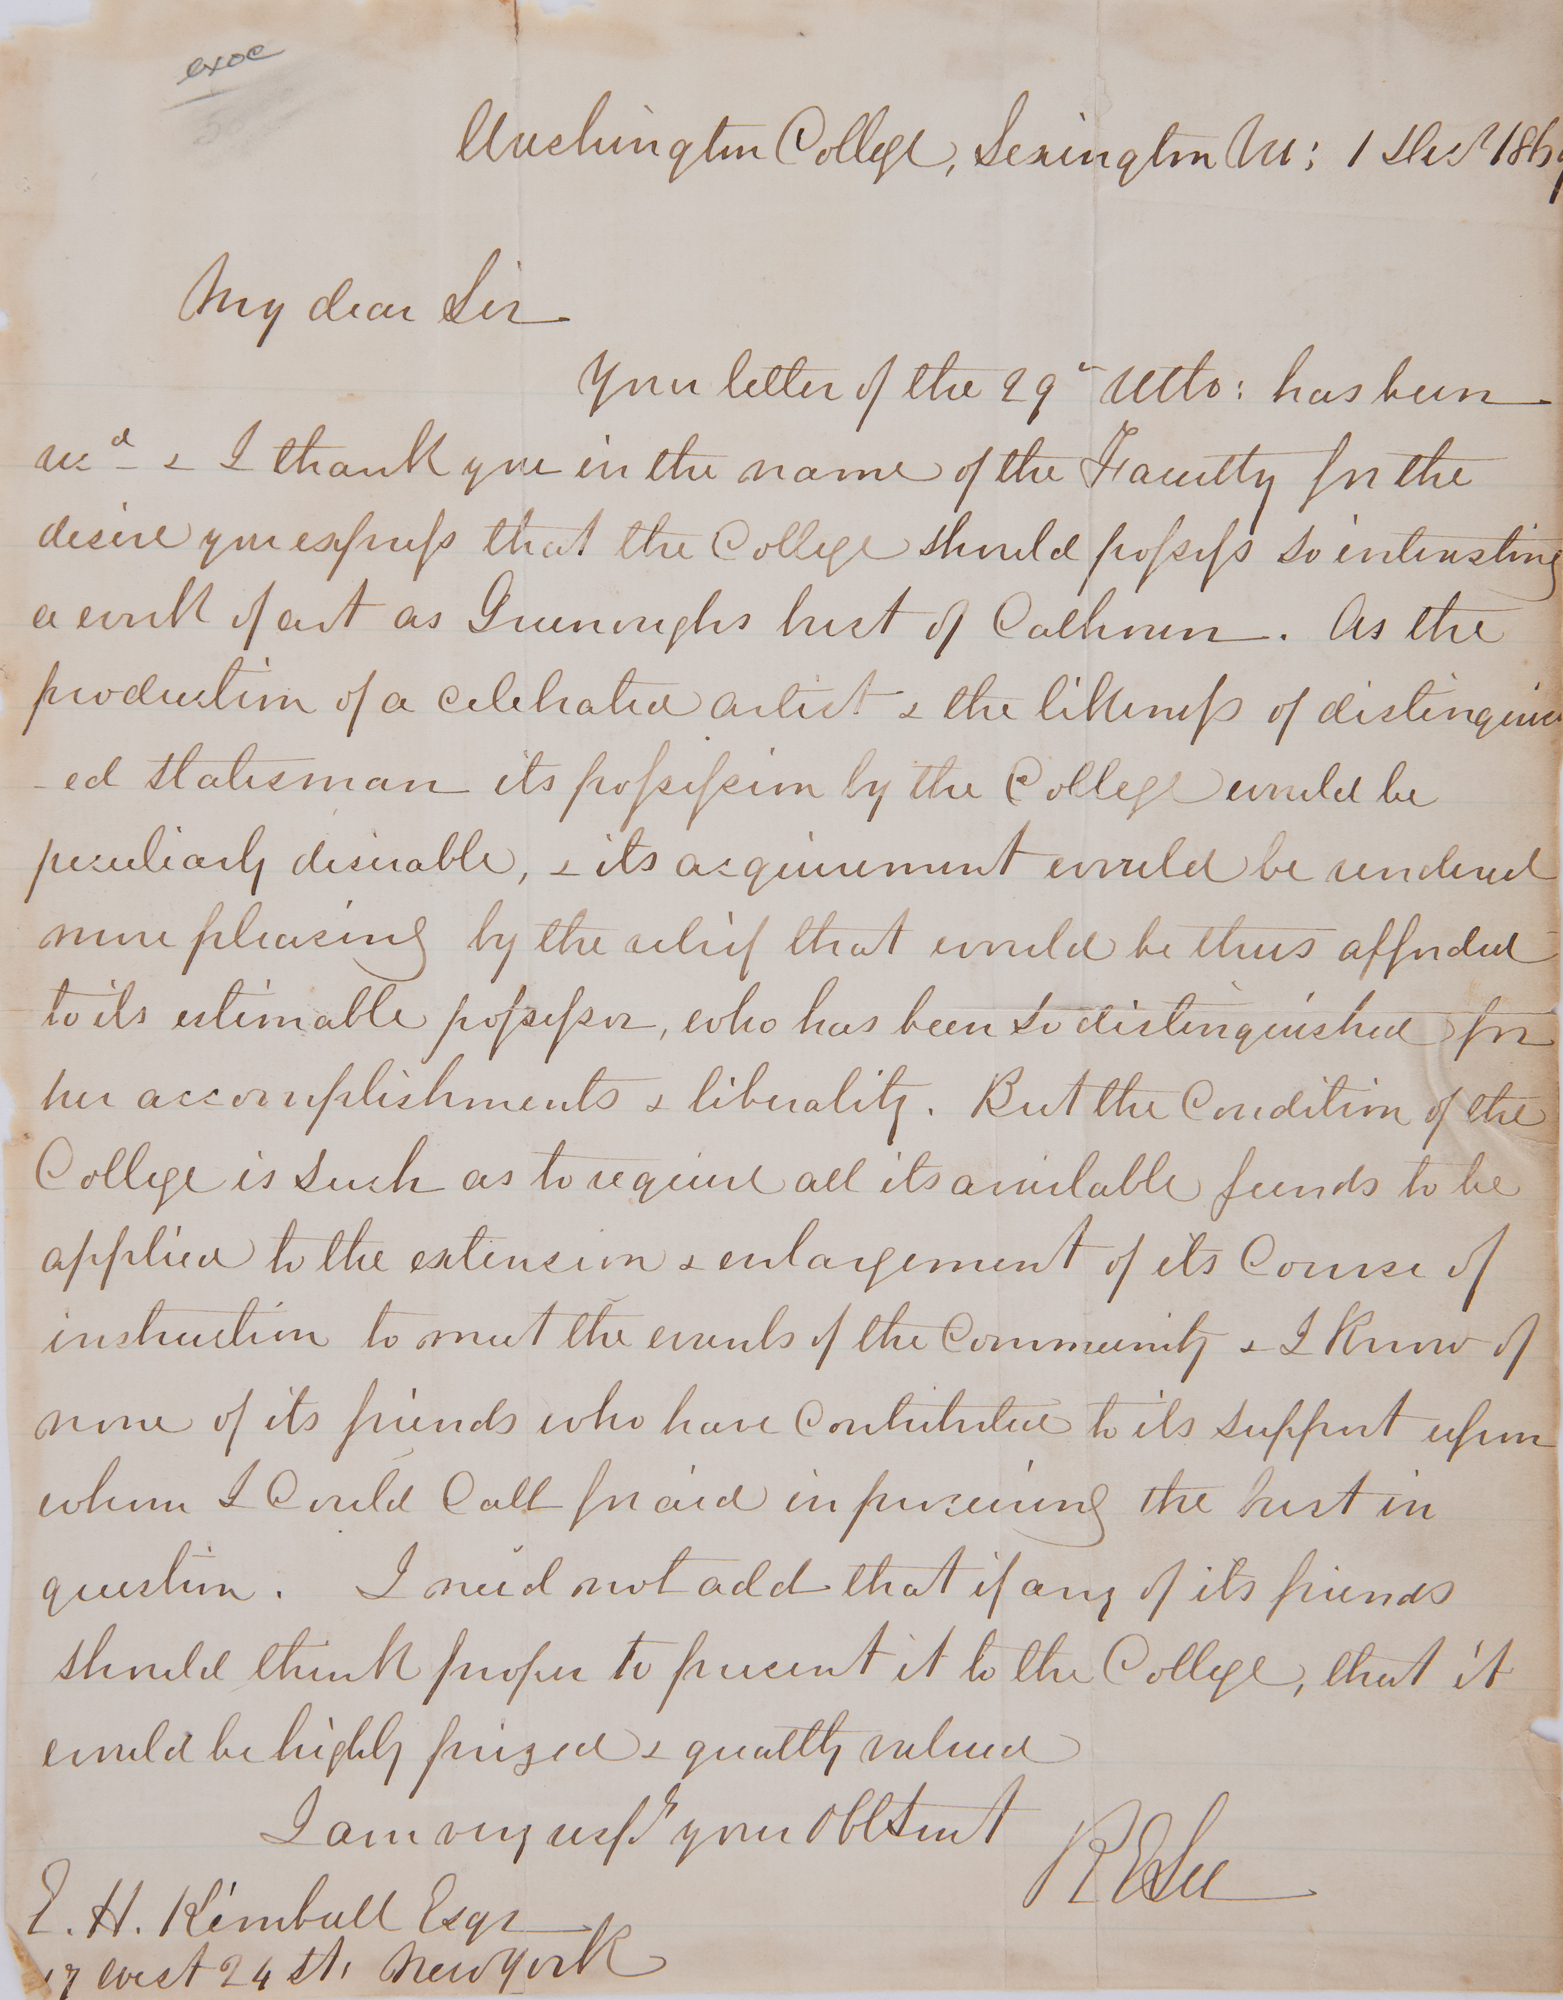 exoc
Washington College, Lexington Va: 1 Dec^r 1869
My dear Sir
Your letter of the 29^th Ulto: has been
rec^d & I thank you in the name of the Faculty for the
desire you express that the College should possess so interesting
a work of art as Greenoughs bust of Calhoun. As the
production of a celebrated artist & the likeness of distinguish
-ed statesman its possession by the College would be
peculiarly desirable, & its acquirement would be rendered
more pleasing by the relief that would be thus afforded
to its estimable possessor, who has been so distinguished for
her accomplishments & liberality. But the Condition of the
College is such as to require all its available funds to be
applied to the extension & enlargement of its Course of
instruction to meet the wants of the Community & I Know of
none of its friends who have Contributed to its support upon
whom I Could Call for aid in procuring the bust in
question. I need not add that if any of its friends
should think proper to present it to the College, that it
would be highly prized & greatly valued
I am very resp^y your Obt Servt
R E Lee
E. H. Kimball Esqr
17 West 24 St, New York